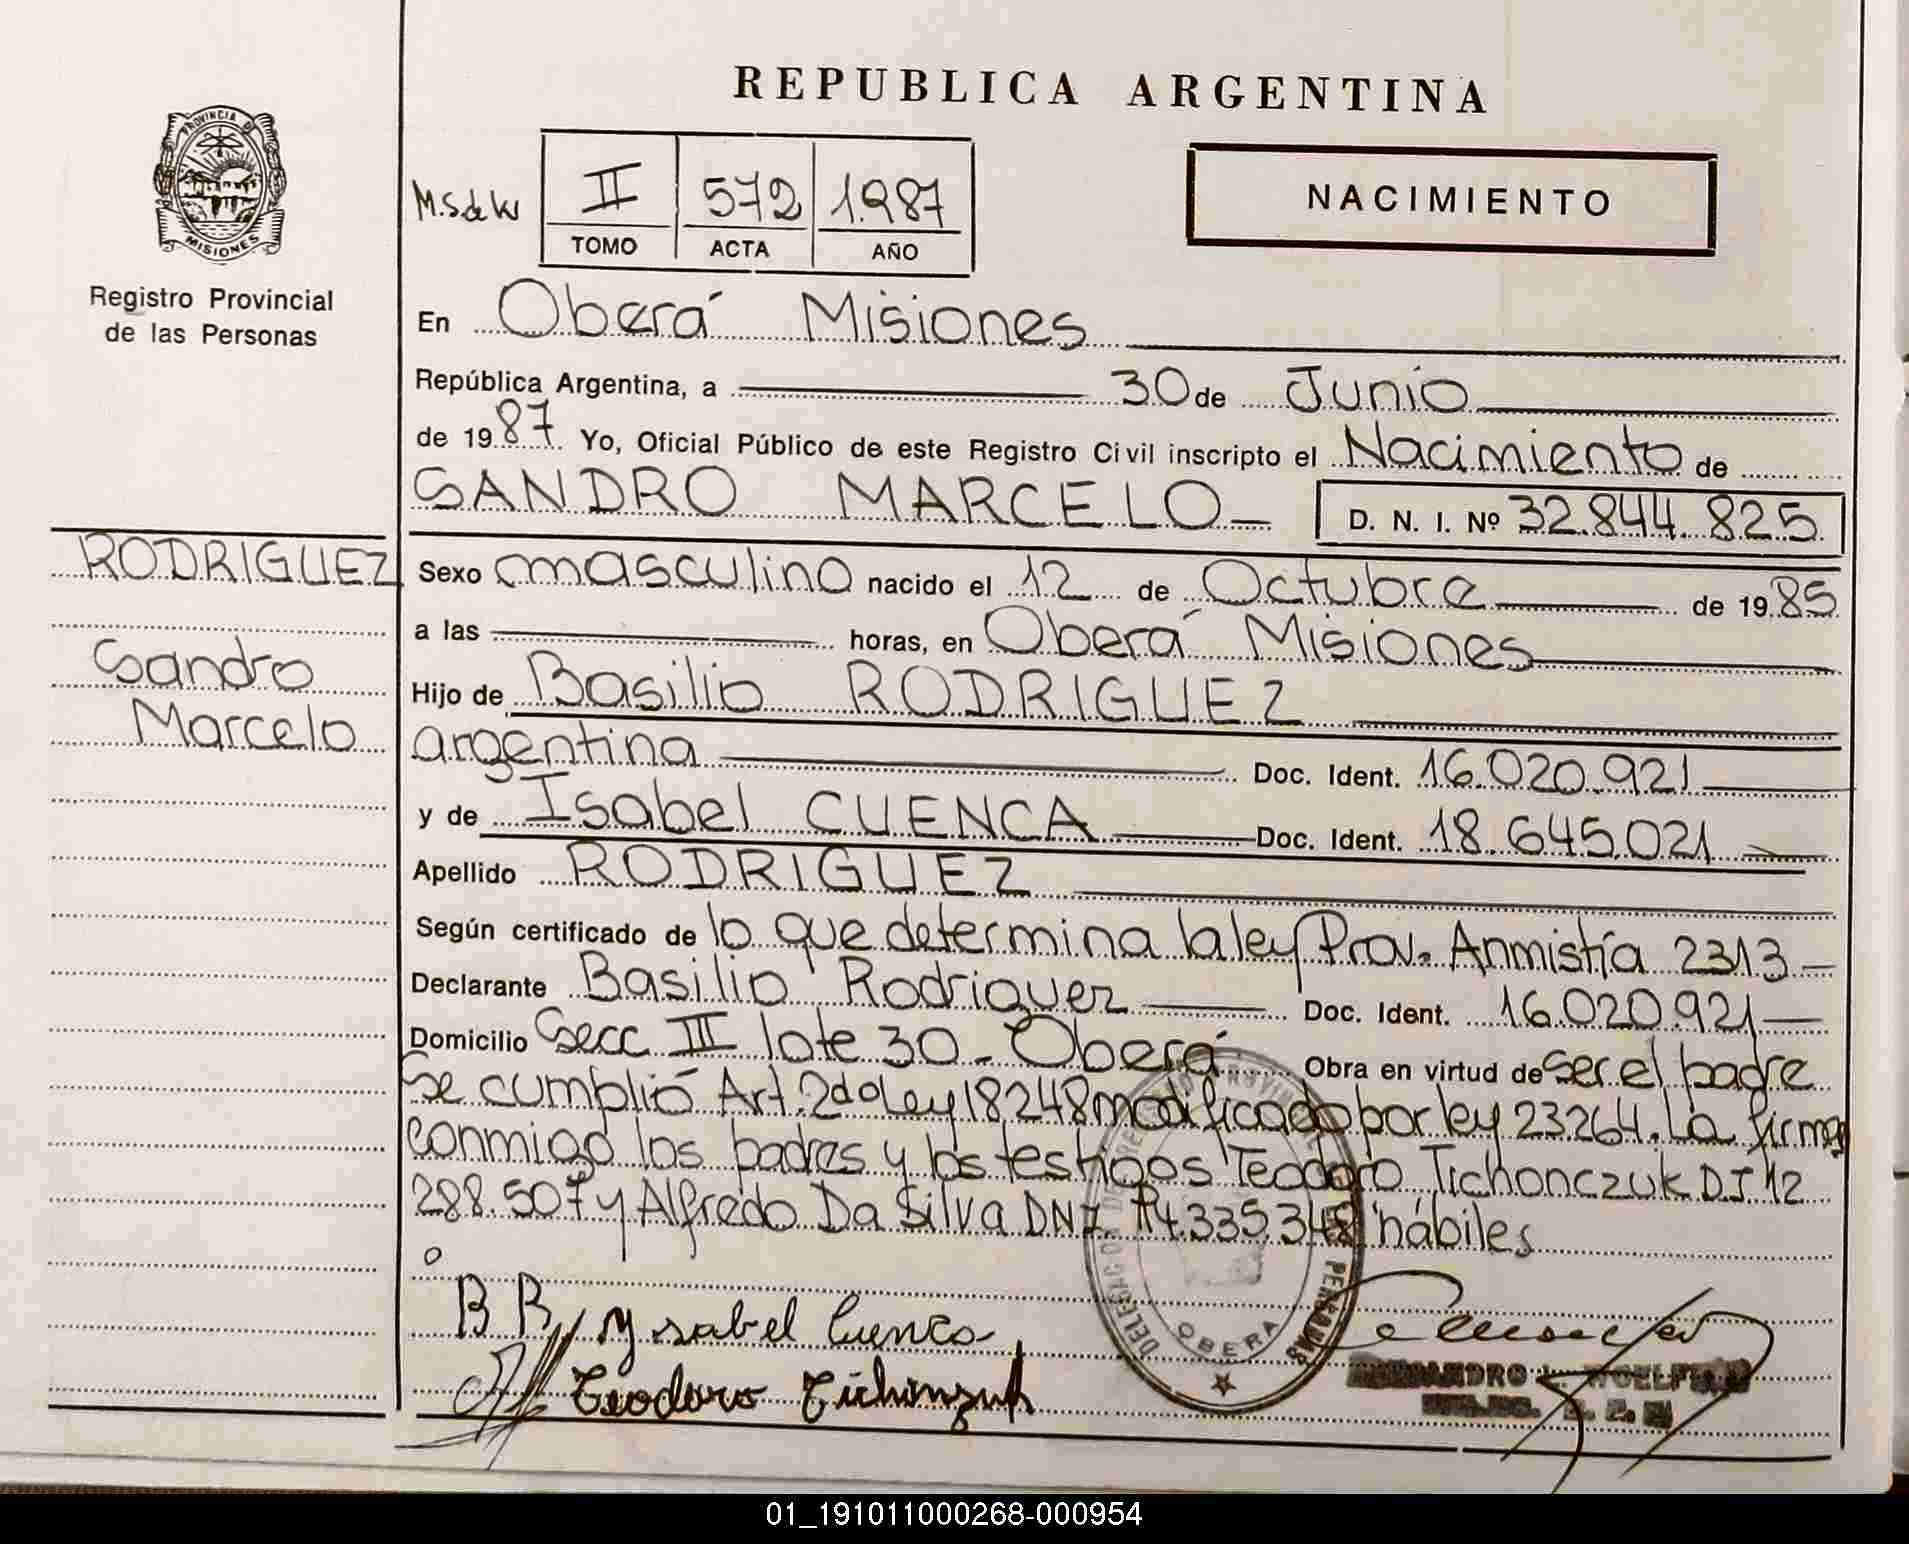 REPUBLICA ARGENTINA
PROVINCIA DE
MISIONES
Registro Provincial
de las Personas
NACIMIENTO
M.S.de W
II 572 1.987
TOMO ACTA AÑO
En Oberá Misiones
República Argentina, a 30 de Junio
de 1987 Yo, Oficial Público de este Registro Civil inscripto el Nacimiento de
SANDRO MARCELO D. N. I. Nº 32.844.825
RODRIGUEZ
Sandro
Marcelo
Sexo masculino nacido el 12 de Octubre de 1985
a las horas, en Oberá Misiones
Hijo de Basilio RODRIGUEZ
argentina Doc. Ident. 16.020.921
y de Isabel CUENCA Doc. Ident. 18.645.021
Apellido RODRIGUEZ
Según certificado de lo que determina la ley Prov. Anmistía 2313
Declarante Basilio Rodriguez Doc. Ident. 16.020.921
Domicilio Secc III lote 30 - Oberá Obra en virtud de ser el padre
Se cumplió Art. 2do Ley 18248 modificado por ley 23264. La firma
conmigo los padres y los testigos Teodoro Tichonczuk DI 12
288.507 y Alfredo Da Silva DNI. 14.335.348 hábiles
B R Ysabel Cuenca
Teodoro
OBERA
PERSONAS
01_191011000268-000954